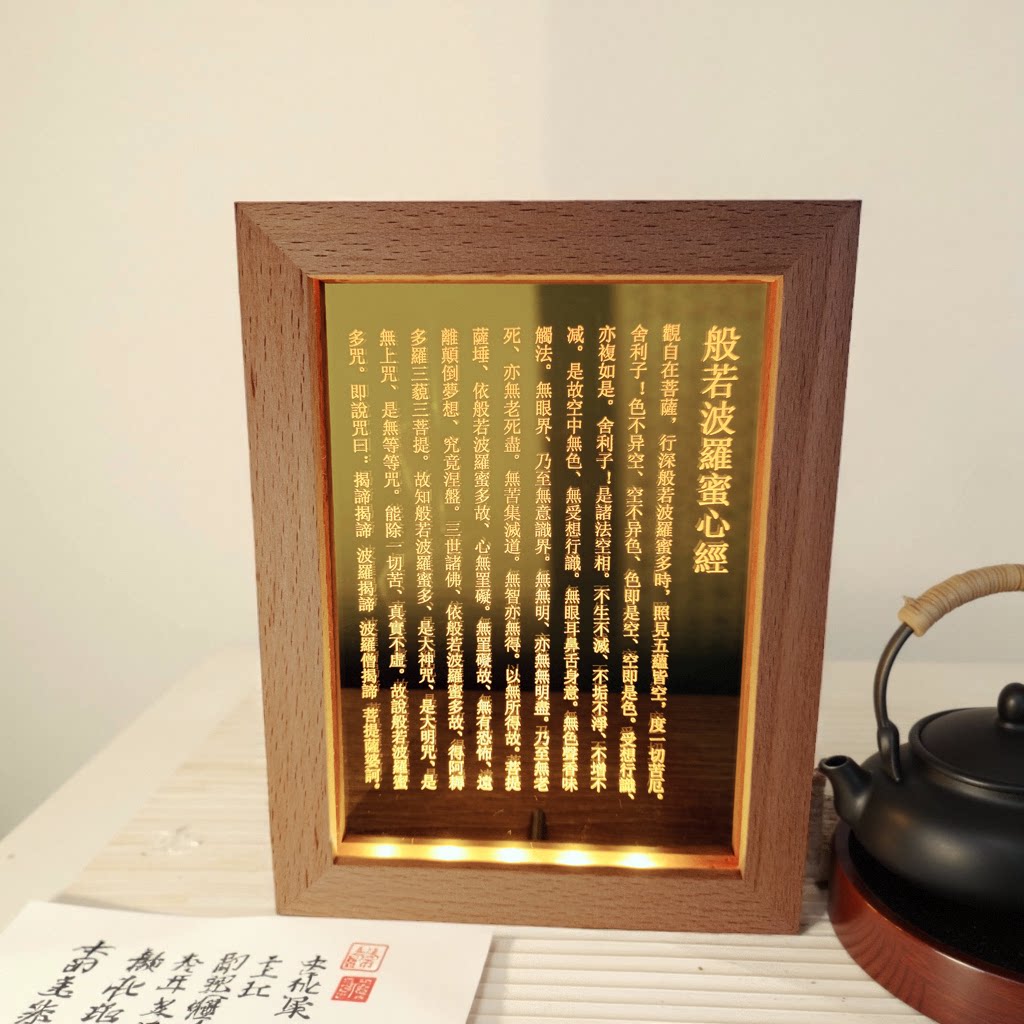 般若波羅蜜心經
觀自在菩薩，行深般若波羅蜜多時，照見五蘊皆空，度一切苦厄。
舍利子！色不异空、空不异色、色即是空、空即是色。受想行識、
亦複如是。舍利子！是諸法空相。不生不滅、不垢不淨、不增不
减。是故空中無色、無受想行識。無眼耳鼻舌身意。無色聲香味
觸法。無眼界、乃至無意識界。無無明、亦無無明盡。乃至無老
死、亦無老死盡。無苦集滅道。無智亦無得。以無所得故。菩提
薩埵、依般若波羅蜜多故、心無罣礙。無罣礙故、無有恐怖、遠
離顛倒夢想、究竟涅盤。三世諸佛、依般若波羅蜜多故、得阿耨
多羅三藐三菩提。故知般若波羅蜜多、是大神咒、是大明咒、是
無上咒、是無等等咒。能除一切苦、真實不虛。故說般若波羅蜜
多咒。即說咒曰：揭諦揭諦 波羅揭諦 波羅僧揭諦 菩提薩婆訶。